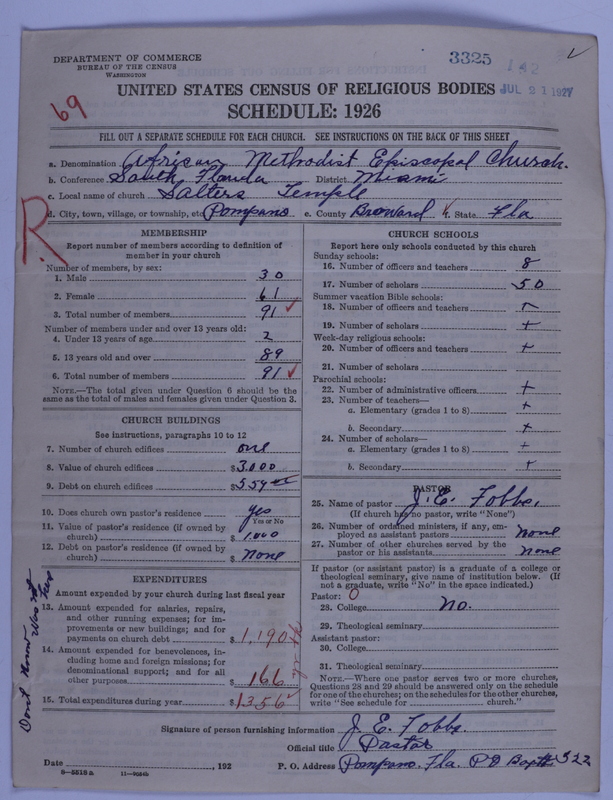 DEPARTMENT OF COMMERCE
BUREAU OF THE CENSUS
WASHINGTON
3325
142
JUL 21 1927
69
UNITED STATES CENSUS OF RELIGIOUS BODIES
SCHEDULE: 1926
FILL OUT A SEPARATE SCHEDULE FOR EACH CHURCH. SEE INSTRUCTIONS ON THE BACK OF THIS SHEET
a. Denomination African Methodist Episcopal Church.
b. Conference South Florida District Miami
c. Local name of church Salters Temple
d. City, town, village, or township, etc Pompano e. County Broward f. State Fla
R
MEMBERSHIP
Report number of members according to definition of member in your church
Number of members, by sex:
1. Male 30
2. Female 61
3. Total number of members 91
Number of members under and over 13 years old:
4. Under 13 years of age 2
5. 13 years old and over 89
6. Total number of members 91
NOTE.—The total given under Question 6 should be the same as the total of males and females given under Question 3.
CHURCH BUILDINGS
See instructions, paragraphs 10 to 12
7. Number of church edifices one
8. Value of church edifices $3000
9. Debt on church edifices $554
10. Does church own pastor's residence yes
Yes or No
11. Value of pastor's residence (if owned by church) $1,000
12. Debt on pastor's residence (if owned by church) $ None
EXPENDITURES
Amount expended by your church during last fiscal year
13. Amount expended for salaries, repairs, and other running expenses; for improvements or new buildings; and for payments on church debt $1,190
14. Amount expended for benevolences, including home and foreign missions; for denominational support; and for all other purposes $166
15. Total expenditures during year $1356
Dont know was not here
CHURCH SCHOOLS
Report here only schools conducted by this church
Sunday schools:
16. Number of officers and teachers 8
17. Number of scholars 50
Summer vacation Bible schools:
18. Number of officers and teachers
19. Number of scholars +
Week-day religious schools:
20. Number of officers and teachers +
21. Number of scholars
Parochial schools:
22. Number of administrative officers +
23. Number of teachers—
a. Elementary (grades 1 to 8) +
b. Secondary +
24. Number of scholars—
a. Elementary (grades 1 to 8) +
b. Secondary +
PASTOR
25. Name of pastor J. E. Fobbs.
(If church has no pastor, write "None")
26. Number of ordained ministers, if any, employed as assistant pastors none
27. Number of other churches served by the pastor or his assistants none
If pastor (or assistant pastor) is a graduate of a college or theological seminary, give name of institution below. (If not a graduate, write "No" in the space indicated.)
Pastor: 0
28. College no.
29. Theological seminary
Assistant pastor:
30. College
31. Theological seminary
NOTE.—Where one pastor serves two or more churches, Questions 28 and 29 should be answered only on the schedule for one of the churches; on the schedules for the other churches, write "See schedule for church."
Signature of person furnishing information J. E. Fobbs.
Official title Pastor
Date , 192
P. O. Address Pompano. Fla. P.O Box 322
8—5518a